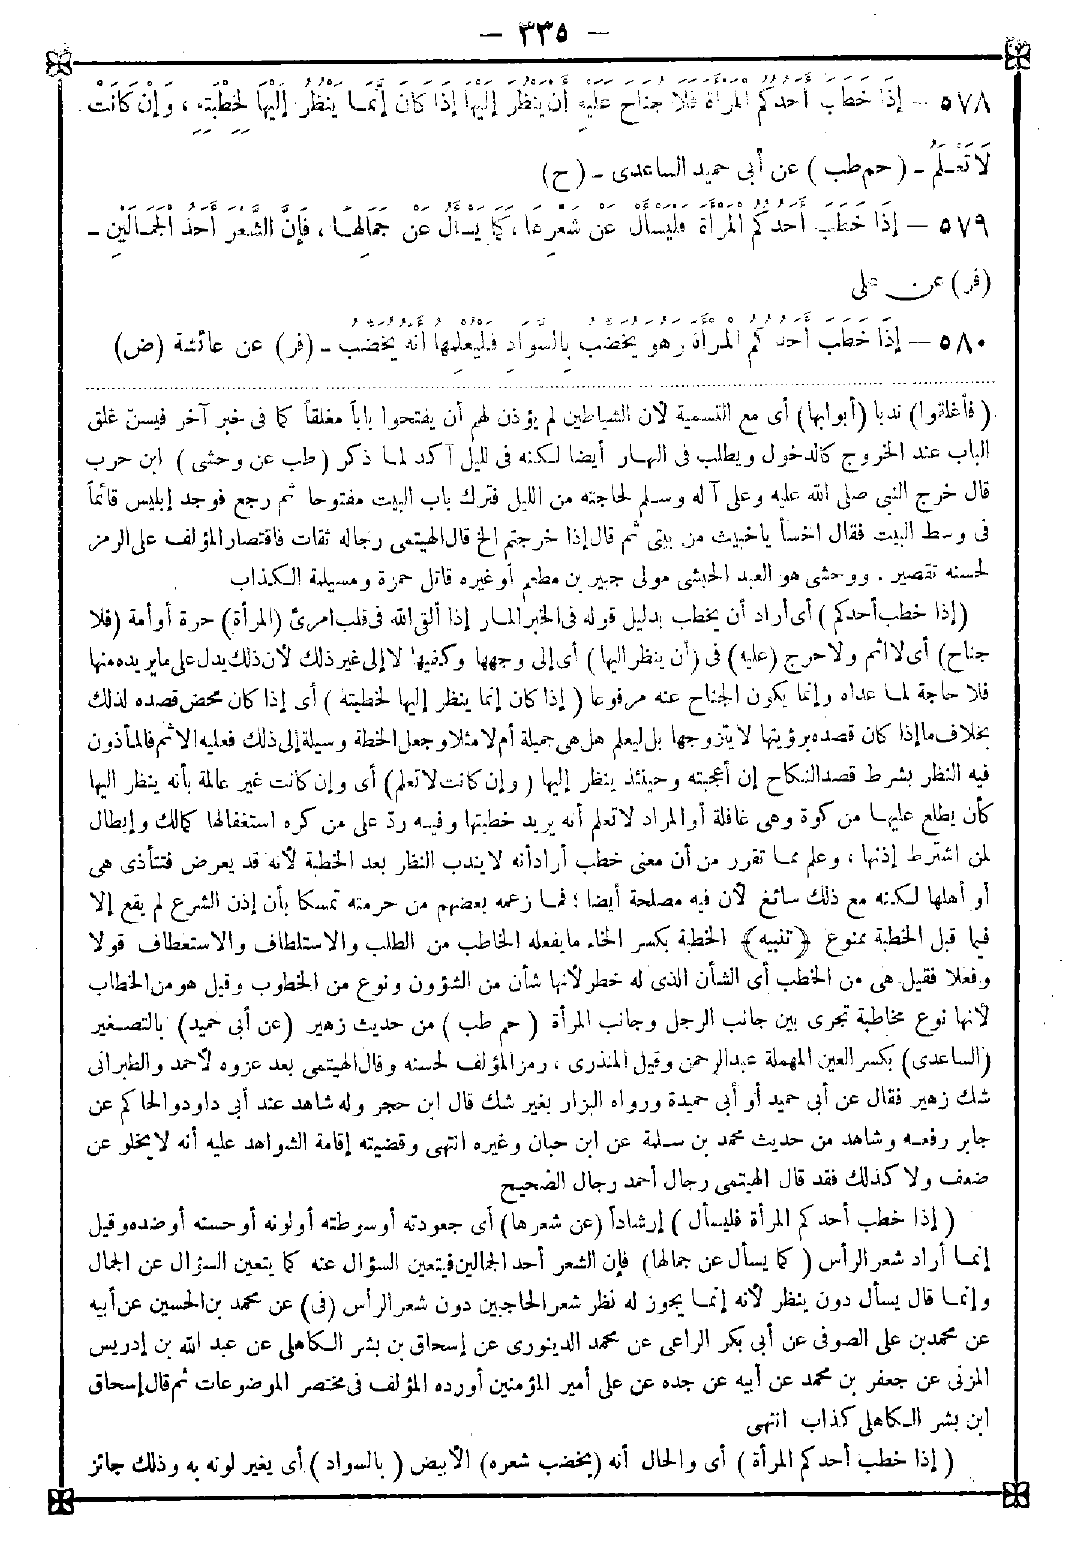 – ٣٣٥ –
٥٧٨ – إِذَا خَطَبَ أَحَدُكُمُ الْمَرْأَةَ فَلَا جُنَاحَ عَلَيْهِ أَنْ يَنْظُرَ إِلَيْهَا إِذَا كَانَ إِنَّمَا يَنْظُرُ إِلَيْهَا لِخِطْبَتِهِ ، وَإِنْ كَانَتْ
لَا تَعْلَمُ – ( حم طب ) عن أبى حميد الساعدى – (ح)
٥٧٩ – إِذَا خَطَبَ أَحَدُكُمُ الْمَرْأَةَ فَلْيَسْأَلْ عَنْ شَعْرِهَا ، كَمَا يَسْأَلُ عَنْ جَمَالِهَا ، فَإِنَّ الشَّعْرَ أَحَدُ الْجَمَالَيْنِ –
(فر) عن على
٥٨٠ – إِذَا خَطَبَ أَحَدُكُمُ الْمَرْأَةَ وَهُوَ يَخْضِبُ بِالسَّوَادِ فَلْيُعْلِمْهَا أَنَّهُ يَخْضِبُ – (فر) عن عائشة (ض)
( فأغلقوا) ندبا (أبوابها) أى مع التسمية لأن الشياطين لم يؤذن لهم أن يفتحوا باباً مغلقاً كما فى خبر آخر فيسن غلق
الباب عند الخروج كالدخول ويطلب فى النهار أيضا لكنه فى لليل آكد لما ذكر (طب عن وحشى ) ابن حرب
قال خرج النبى صلى الله عليه وعلى آله وسلم لحاجته من الليل فترك باب البيت مفتوحا ثم رجع فوجد إبليس قائماً
فى وسط البيت فقال اخسأ ياخبيث من بيتى ثم قال إذا خرجتم الخ قال الهيتمى رجاله ثقات فاقتصار المؤلف على الرمز
لحسنه تقصير . ووحشى هو العبد الحبشى مولى جبير بن مطعم أو غيره قاتل حمزة ومسيلمة الكذاب
(إذا خطب أحدكم ) أى أراد أن يخطب بدليل قوله فى الخبر المار إذا ألقى الله فى قلب امرئ (المرأة) حرة أو أمة (فلا
جناح) أى لا اثم ولا حرج (عليه) فى (أن ينظر اليها ) أى إلى وجهها وكفيها لا إلى غير ذلك لأن ذلك يدل على ما يريده منها
فلا حاجة لما عداه وإنما يكون الجناح عنه مرفوعا ( إذا كان إنما ينظر إليها لخطبته ) أى إذا كان محض قصده لذلك
بخلاف ما إذا كان قصده برؤيتها لا يتزوجها بل ليعلم هل هى جميلة أم لا مثلا وجعل الخطبة وسيلة إلى ذلك فعليه الاثم فالمأذون
فيه النظر بشرط قصد النكاح إن أعجبته وحينئذ ينظر إليها ( وإن كانت لا تعلم) أى وإن كانت غير عالمة بأنه ينظر اليها
كأن يطلع عليها من كوة وهى غافلة أو المراد لا تعلم أنه يريد خطبتها وفيه ردّ على من كره استغفالها كمالك وإبطال
لمن اشترط إذنها ، وعلم مما تقرر من أن معنى خطب أراد أنه لا يندب النظر بعد الخطبة لأنه قد يعرض فتتأذى هى
أو أهلها لكنه مع ذلك سائغ لأن فيه مصلحة أيضا ؛ فما زعمه بعضهم من حرمته تمسكا بأن إذن الشرع لم يقع إلا
فيما قبل الخطبة ممنوع ﴿تنبيه﴾ الخطبة بكسر الخاء ما يفعله الخاطب من الطلب والاستلطاف والاستعطاف قولا
وفعلا فقيل هى من الخطب أى الشأن الذى له خطر لأنها شأن من الشؤون ونوع من الخطوب وقيل هو من الخطاب
لأنها نوع مخاطبة تجرى بين جانب الرجل وجانب المرأة ( حم طب ) من حديث زهير (عن أبى حميد) بالتصغير
(الساعدى) بكسر العين المهملة عبد الرحمن وقيل المنذرى ، رمز المؤلف لحسنه وقال الهيتمى بعد عزوه لأحمد والطبرانى
شك زهير فقال عن أبى حميد أو أبى حميدة ورواه البزار بغير شك قال ابن حجر وله شاهد عند أبى داود والحاكم عن
جابر رفعه وشاهد من حديث محمد بن سلمة عن ابن حبان وغيره انتهى وقضيته إقامة الشواهد عليه أنه لا يخلو عن
ضعف ولا كذلك فقد قال الهيتمى رجال أحمد رجال الضحيح
( إذا خطب أحدكم المرأة فليسأل ) إرشاداً (عن شعرها) أى جعودته أو سوطته أو لونه أو حسنه أو ضده وقيل
إنما أراد شعر الرأس ( كما يسأل عن جمالها) فإن الشعر أحد الجمالين فيتعين السؤال عنه كما يتعين السؤال عن الجمال
وإنما قال يسأل دون ينظر لأنه إنما يجوز له نظر شعر الحاجبين دون شعر الرأس (فى) عن محمد بن الحسين عن أبيه
عن محمد بن على الصوفى عن أبى بكر الراعى عن محمد الدينورى عن إسحاق بن بشر الكاهلى عن عبد الله بن إدريس
المزنى عن جعفر بن محمد عن أبيه عن جده عن على أمير المؤمنين أورده المؤلف فى مختصر الموضوعات ثم قال إسحاق
ابن بشر الكاهلى كذاب انتهى
( إذا خطب أحدكم المرأة ) أى والحال أنه (يخضب شعره) الأبيض ( بالسواد ) أى يغير لونه به وذلك جائز